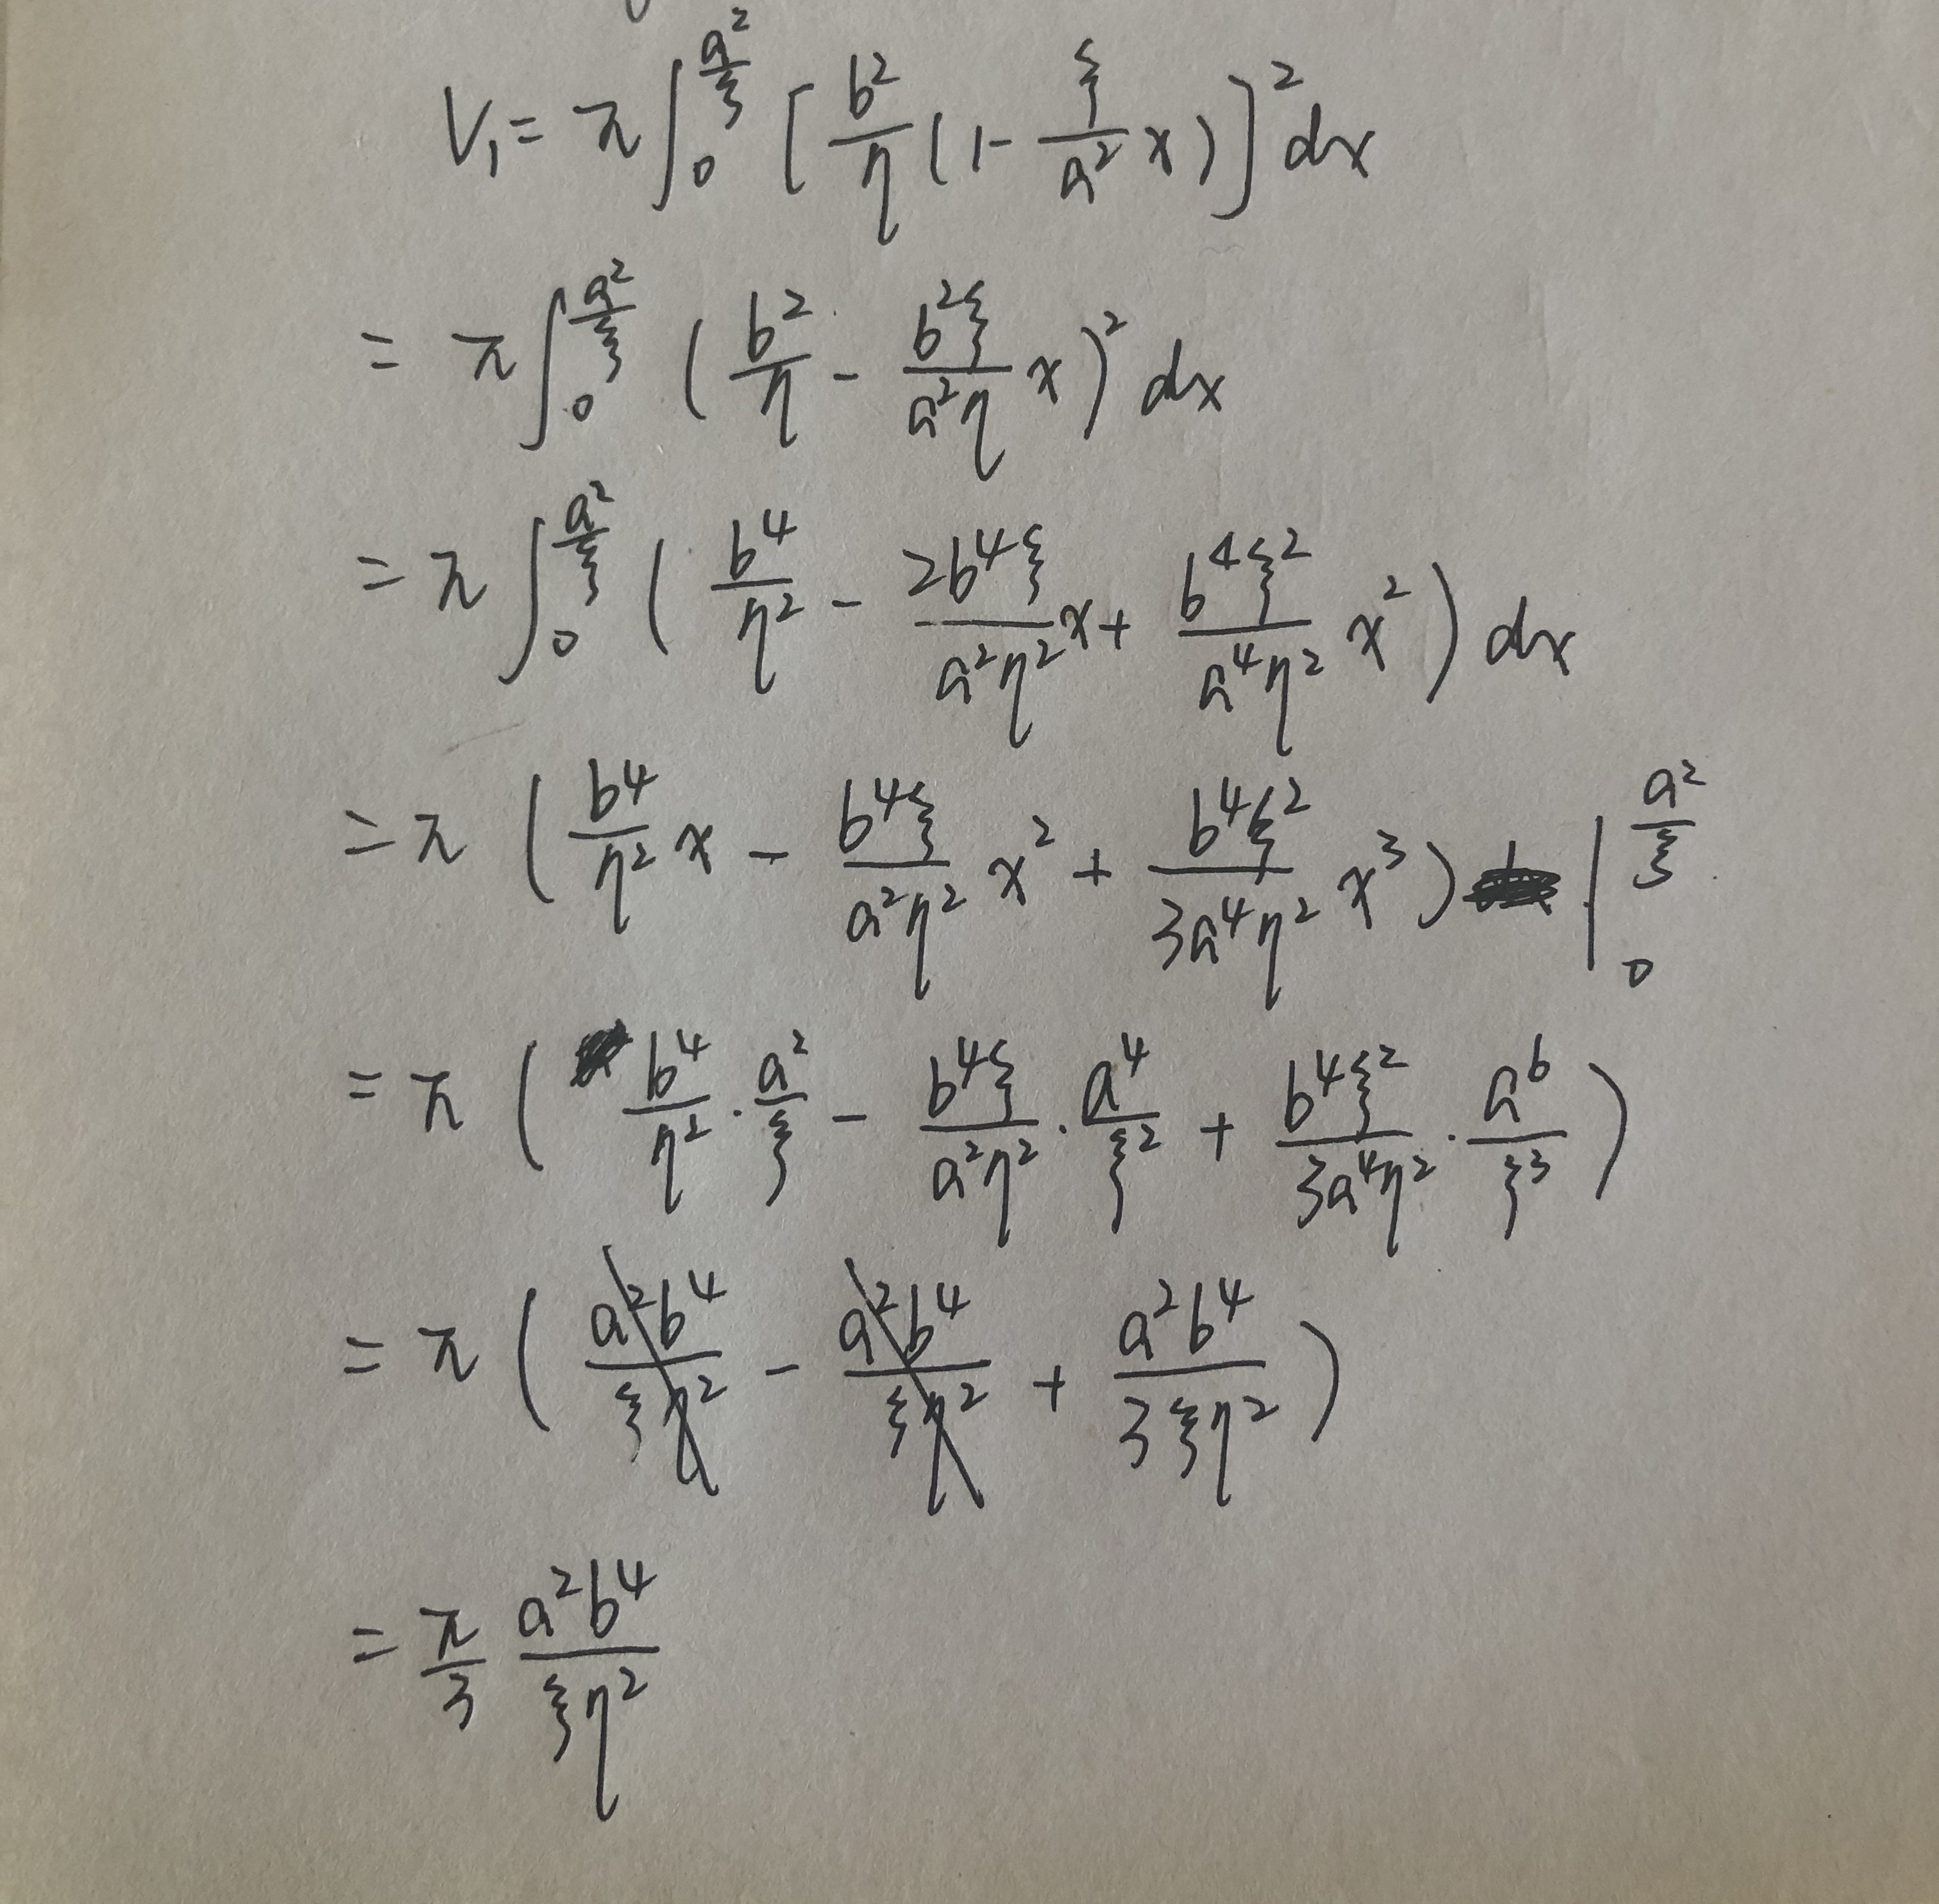 V₁ = π∫₀^(a²/ξ) [b²/η (1 - ξ/a² x)]² dx
= π∫₀^(a²/ξ) (b²/η - b²ξ/(a²η) x)² dx
= π∫₀^(a²/ξ) (b⁴/η² - 2b⁴ξ/(a²η²) x + b⁴ξ²/(a⁴η²) x²) dx
= π (b⁴/η² x - b⁴ξ/(a²η²) x² + b⁴ξ²/(3a⁴η²) x³) |₀^(a²/ξ)
= π (b⁴/η² · a²/ξ - b⁴ξ/(a²η²) · a⁴/ξ² + b⁴ξ²/(3a⁴η²) · a⁶/ξ³)
= π (a²b⁴/(ξη²) - a²b⁴/(ξη²) + a²b⁴/(3ξη²))
= π/3 a²b⁴/(ξη²)